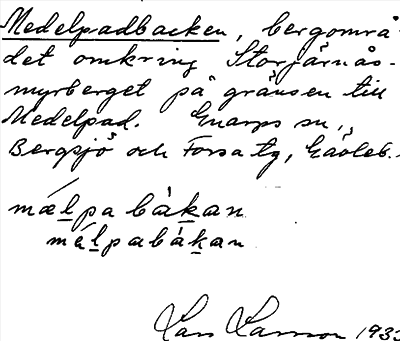 Medelpadbacken, bergområ-
det omkring Storjärnås-
myrberget på gränsen till
Medelpad. Gnarps sn,
Bergsjö och Forsa tg, Gävleb.
mælpabàkan
mélpabàkan
Lars Larsson 1933